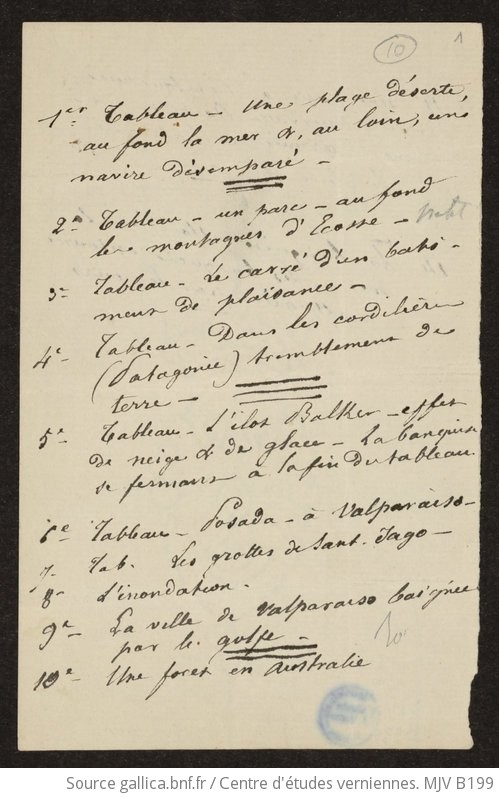 10
1
1er Tableau - Une plage déserte,
au fond la mer &, au loin, un
navire désemparé -
2e Tableau - un parc - au fond
les montagnes d'Ecosse -
3e Tableau - Le carré d'un bati-
ment de plaisance -
4e Tableau - Dans les cordilières
(Patagonie) tremblement de
terre -
5e Tableau - L'ilot Balker - effet
de neige & de glace - La banquise
se fermant à la fin du tableau.
6e Tableau - Posada - à Valparaiso -
7e Tab. Les grottes de Sant-Iago -
8e L'inondation.
9e La ville de Valparaiso baignée
par le golfe -
10e - Une foret en Australie
Source gallica.bnf.fr / Centre d'études verniennes. MJV B199